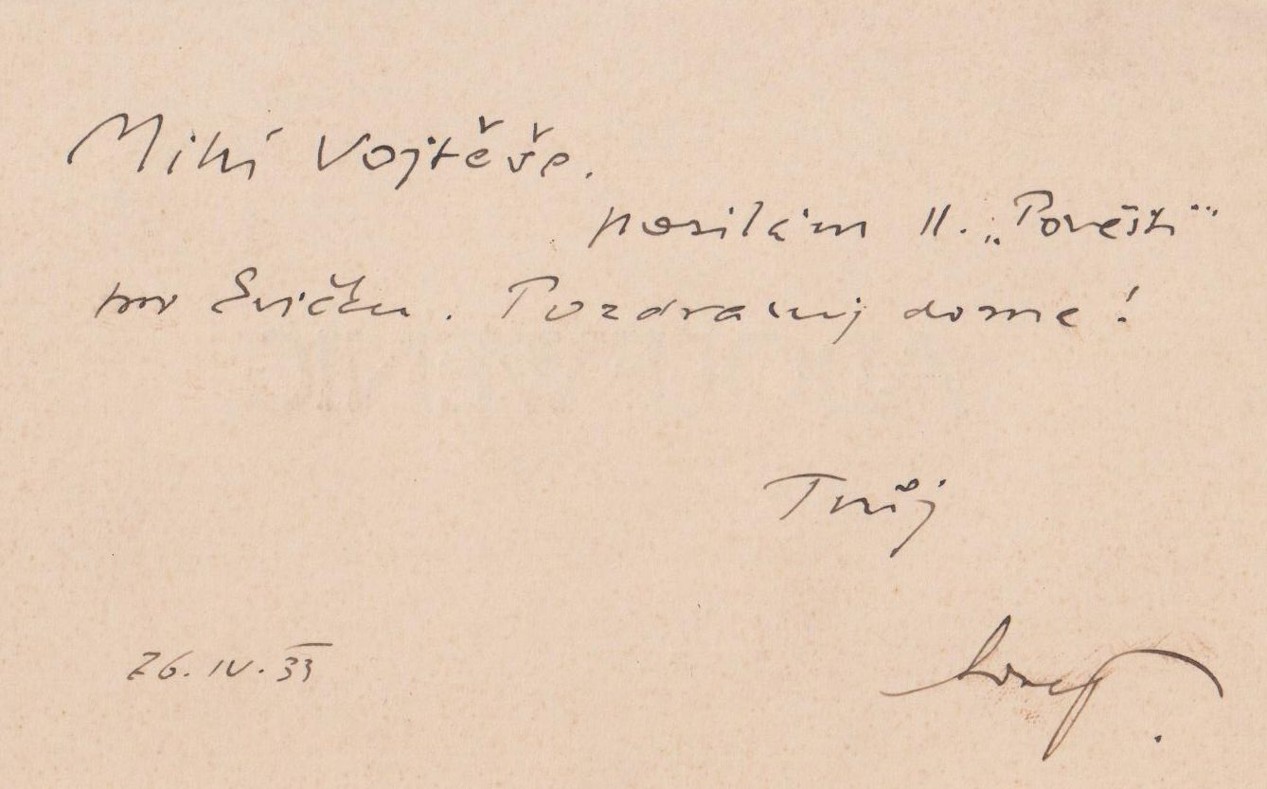 Milý Vojtěše.
posílám II. „Pověsti"
pro Evičku. Pozdravuj doma!
Tvůj
Josef
26.IV.33